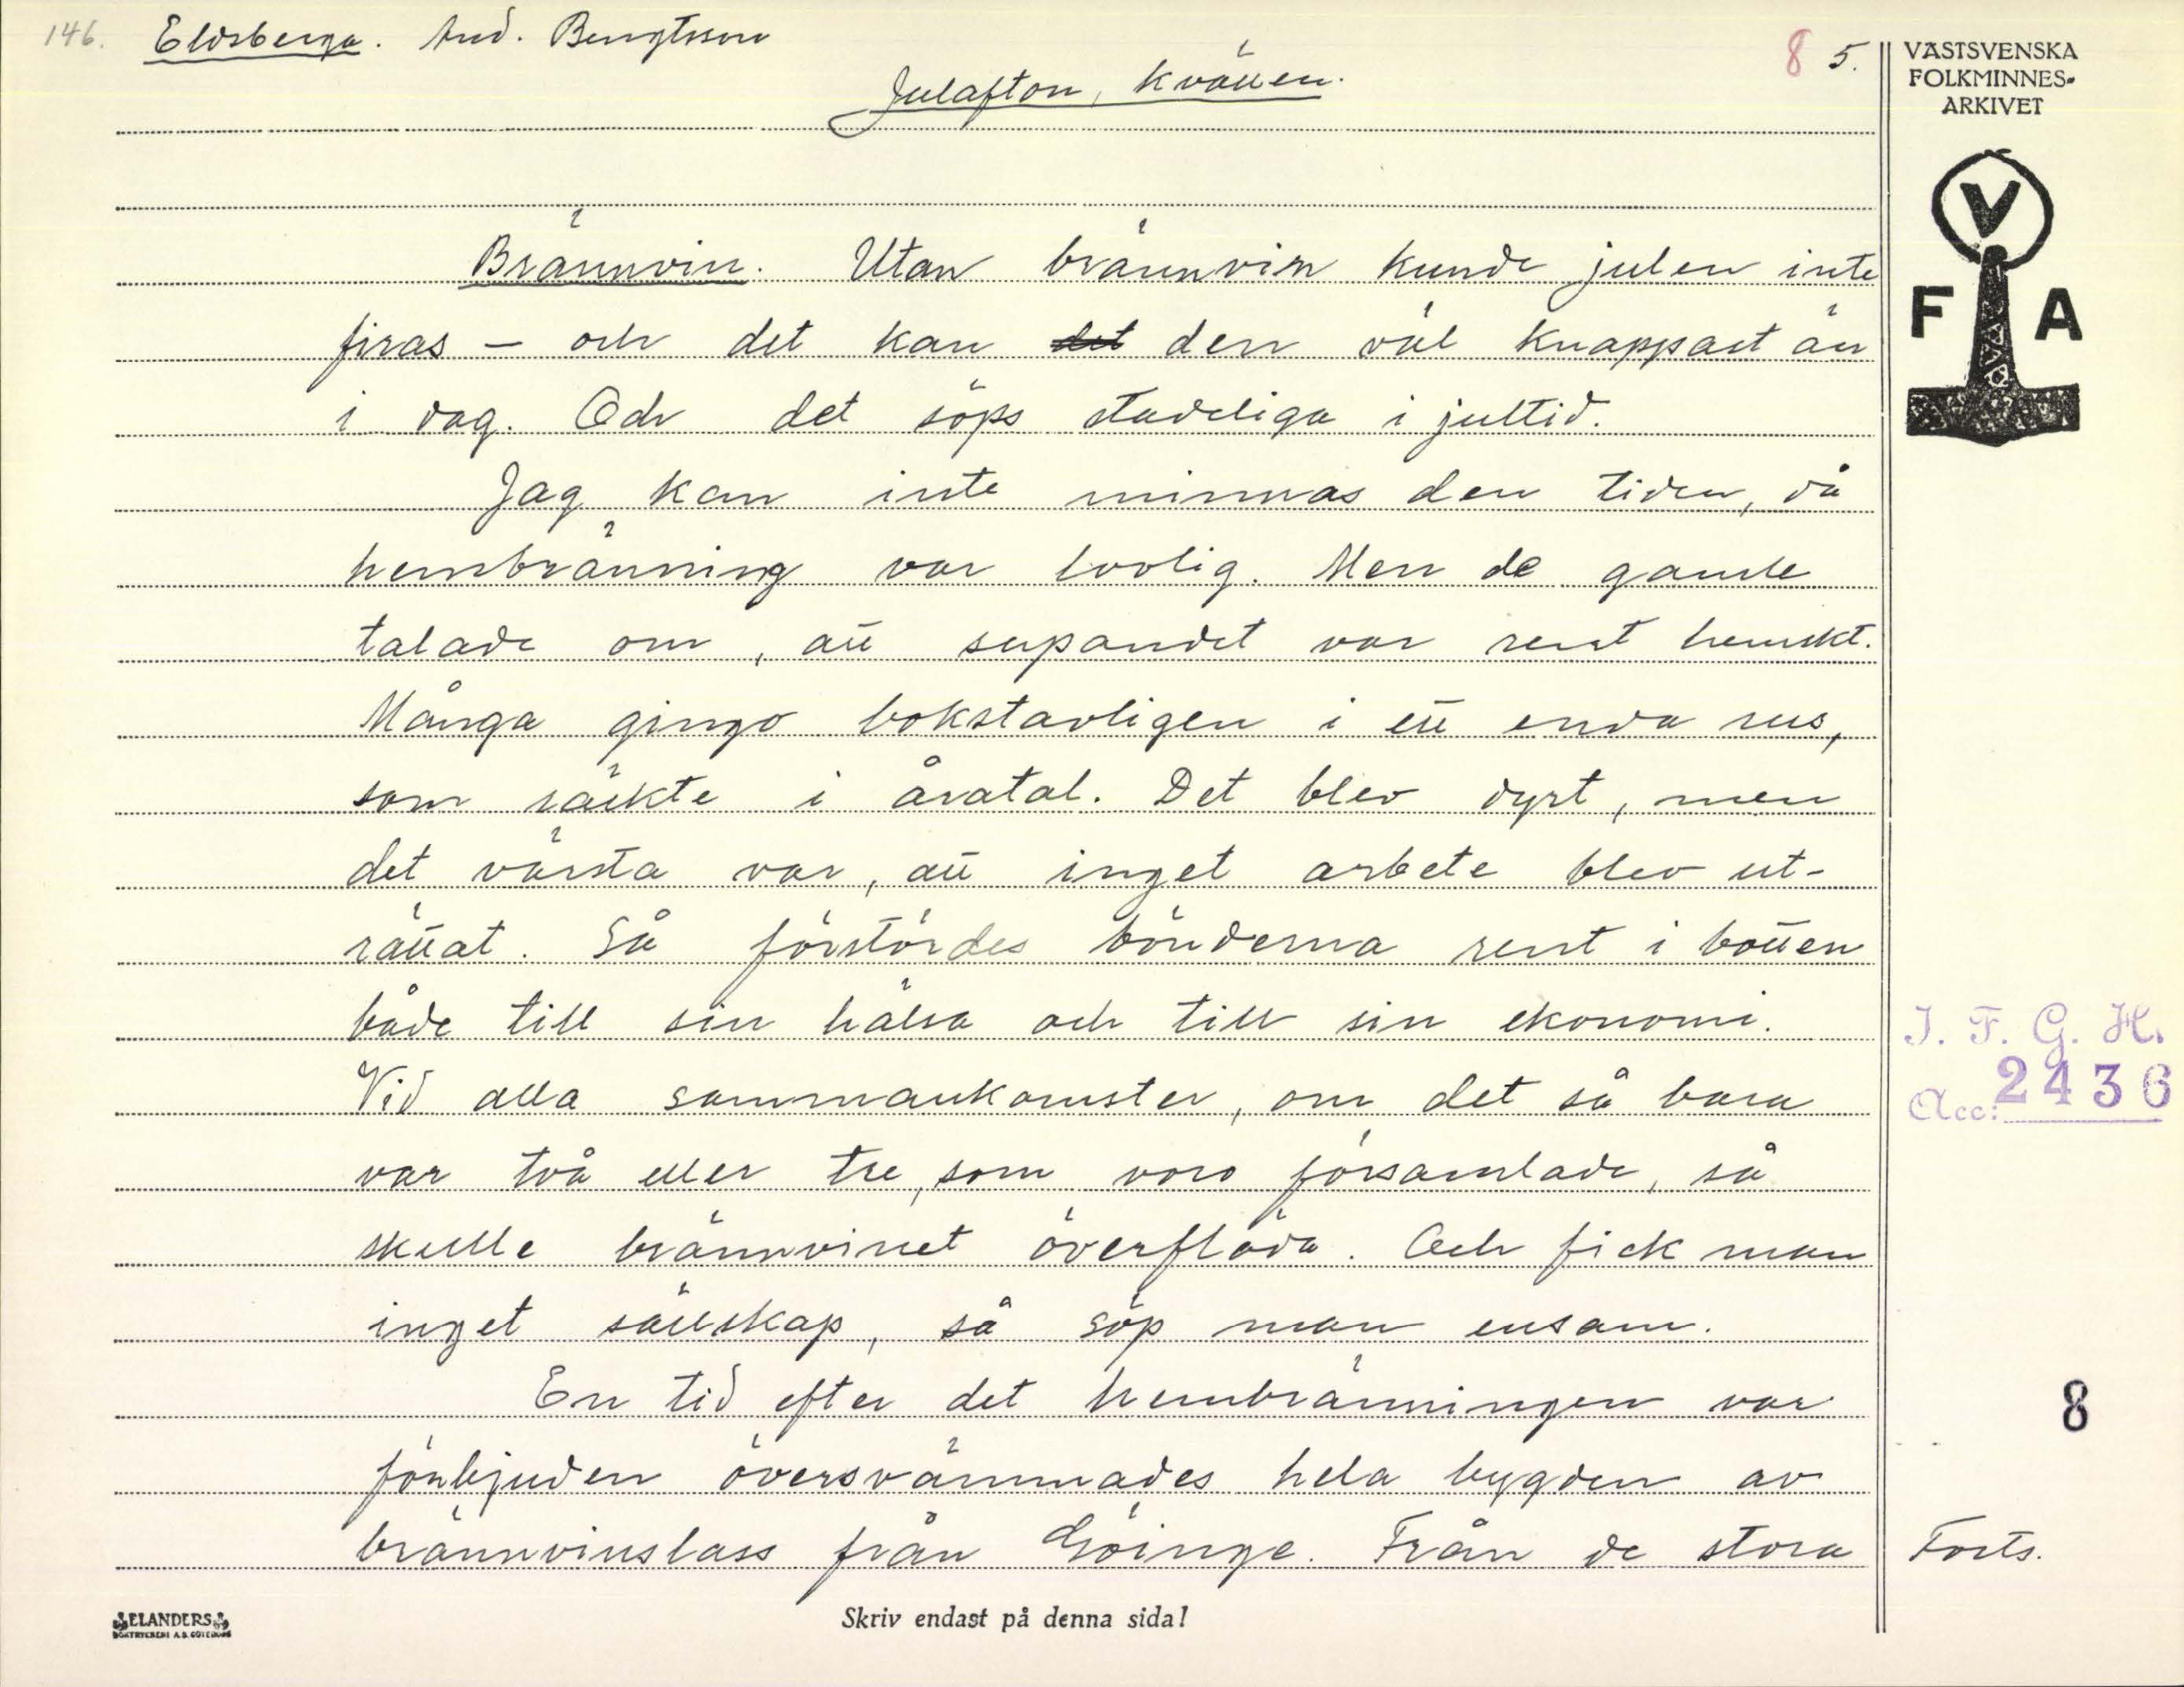 146. Eldsberga. And. Bengtsson
8 5.
Julafton, kvällen.
VÄSTSVENSKA
FOLKMINNES-
ARKIVET
V
F A
Brännvin. Utan brännvin kunde julen inte
firas – och det kan det den väl knappast än
i dag. Och det söps stadeliga i jultid.
Jag kan inte minnas den tiden, då
hembränning var lovlig. Men de gamle
talade om, att supandet var rent hemskt.
Många gingo bokstavligen i ett enda rus,
som räckte i åratal. Det blev dyrt, men
det värsta var, att inget arbete blev ut-
rättat. Så förstördes bönderna rent i botten
både till sin hälsa och till sin ekonomi.
Vid alla sammankomster, om det så bara
var två eller tre, som voro församlade, så
skulle brännvinet överflöda. Och fick man
inget sällskap, så söp man ensam.
En tid efter det hembränningen var
förbjuden översvämmades hela bygden av
brännvinslass från Göinge. Från de stora
I. F. G. H.
Acc: 2436
8
Forts.
ELANDERS
BOKTRYCKERI A.B. GÖTEBORG
Skriv endast på denna sida!